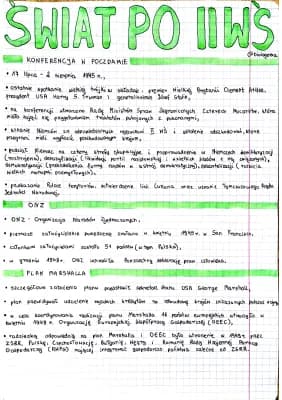 ŚWIAT PO II WŚ
KONFERENCJA W POCZDAMIE
• 17 lipca - 2 sierpnia 1945 r.,
• ostatnie spotkanie wielkiej trójki w składzie: premier Wielkiej Brytanii Clement Attlee,
prezydent USA Harry S. Truman i generalissimus Józef Stalin,
• na konferencji utworzono Radę Ministrów Spraw Zagranicznych Czterech Mocarstw, która
miała zająć się przygotowaniem traktatów pokojowych z państwami,
• Niemiec za odpowiedzialnych II WŚ i
• podział Niemiec na cztery strefy okupacyjne i przeprowadzenie w Niemczech demilitaryzacji
(rozbrojenia), denazyfikacji (likwidacji partii nazistowskiej i wszelkich śladów z nią związanych),
demokratyzacji ( formy rządów w demokratyczny), dekartelizacji (rozbicia
wielkich koncernów przemysłowych),
• Polsce
Jedności Narodowej.
ONZ
• ONZ - Organizacja Narodów Zjednoczonych,
• pierwsze założycielskie posiedzenie zwołano w kwietniu 1945 r. w San Francisco,
• członkami założycielami zostało 51 państw (w tym Polska),
• w grudniu 1948 r. ONZ uchwaliła Powszechną deklarację praw człowieka.
PLAN MARSHALLA
• szczegółowe założenia planu przedstawił sekretarz stanu USA George Marshall,
• plan przewidywał udzielenie wysokich kredytów na odbudowę krajów zniszczonych podczas wojny,
• w celu koordynowania realizacji planu Marshalla 16 państw europejskich utworzyło w
kwietniu 1948 r. Organizację Europejskiej Współpracy Gospodarczej (OEEC),
• radziecką odpowiedzią na plan Marshalla i OEEC było utworzenie w 1949 r. przez
ZSRR, Polskę, Czechosłowację, Bułgarię, Węgry i Rumunię Rady Wzajemnej Pomocy
Gospodarczej (RWPG) mającej integrować gospodarczo państwa zależne od ZSRR.